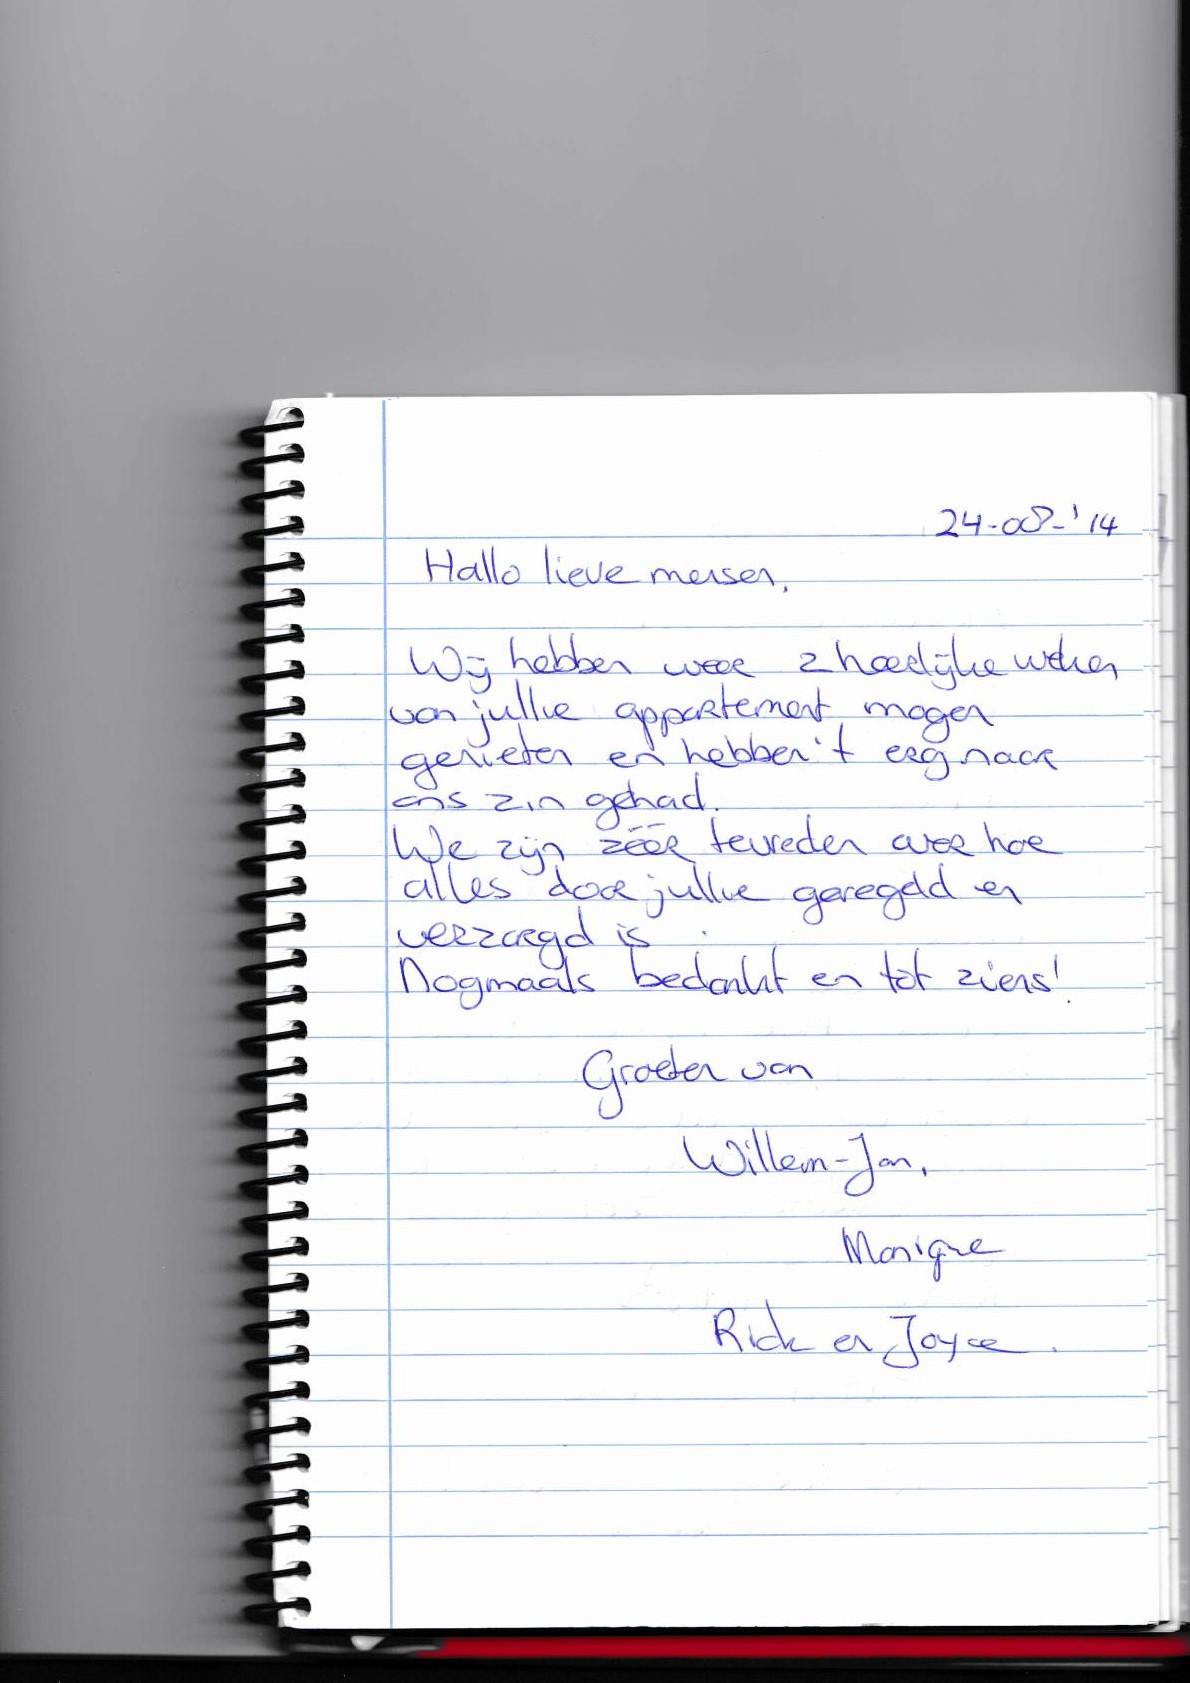 24-08-'14
Hallo lieve mensen,
Wij hebben weer 2 heerlijke weken
van jullie appartement mogen
genieten en hebben 't erg naar
ons zin gehad.
We zijn zéér tevreden over hoe
alles door jullie geregeld en
verzorgd is
Nogmaals bedankt en tot ziens!
Groeten van
Willem-Jan,
Monique
Rick en Joyce.